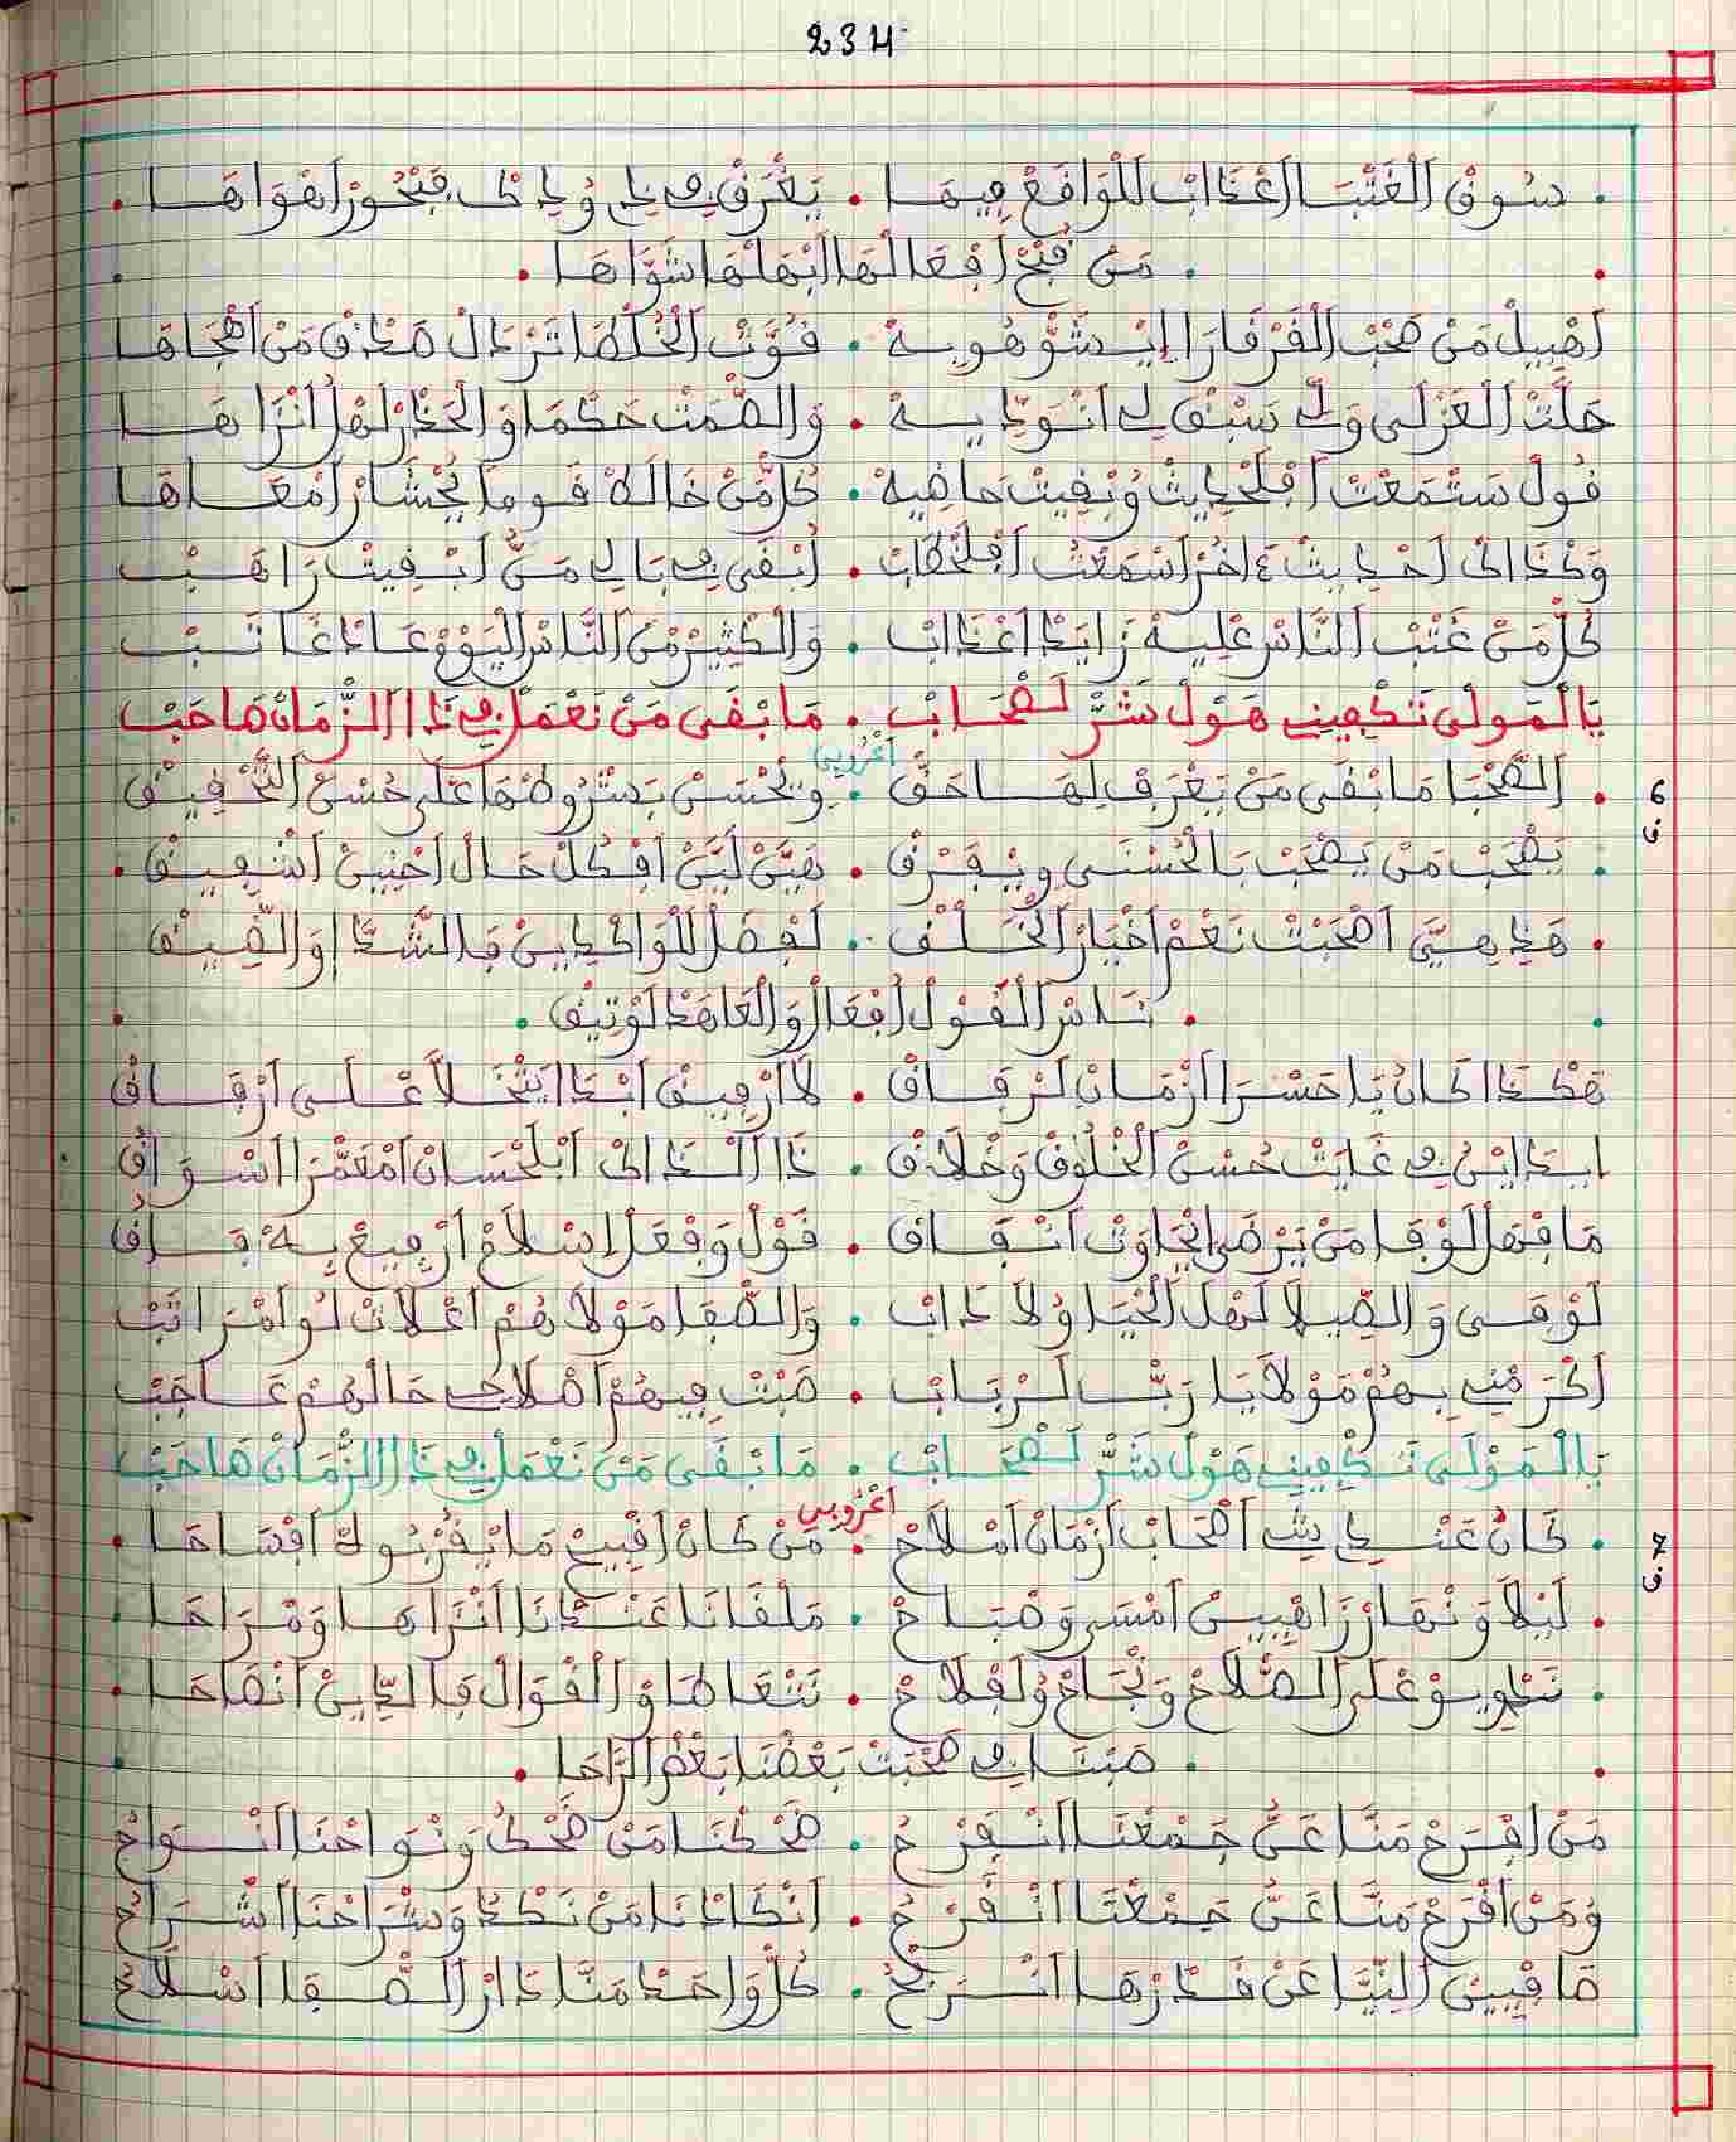 234
. سُوقْ اَلْغَتْبَا اَعْذَابْ لَلْوَاقَعْ فِيهَا . يَغْرَقْ فِي ذِي وُذِيكْ فَبْحُورْ اَهْوَاهَا .
. مَنْ قُبْحْ اَفْعَالْهَا اَبْهَلْهَا شَوَّاهَا .
اَهْبِيلْ مَنْ صْحَبْ اَلْفَرْفَارَا إِيْشَوّْهُو بِهْ . فَوَّتْ اَلْخُلْطَا تَرْتَالْ صَدْقْ مَنْ اَهْجَاهَا
حَلَّتْ اَلْعَزْلَى وَلِّي سَبْقْ لِي اَنْوَدِّيهْ . وَالصَّمْتْ حَكْمَا وَالْحَذْرْ لَهْلْ اَنْزَاهَا
قُولْ سَتْمَعْتْ اَفْلَحْدِيثْ وُبْقِيتْ حَاضِيهْ . كُلّْ مَنْ خَالَطْ قَومَا يُحْشَارْ اَمْعَاهَا
وَكْذَاكْ اَحْدِيثْ ءَاخُرْ اَسْمَعْتُ اَفْلَخْطَابْ . اَبْقَى فِي بَالِي مَنُّ اَبْقِيتْ رَاهَبْ
كُلّْ مَنْ غَتْبْ اَلنَّاسْ عْلِيهْ زَايَدْ اَعْذَابْ . وَالْكْثِيرْ مْنْ اَلنَّاسْ اَلْيَوْمْ عَادْ غَاتَبْ
يَا لْمَوْلَى تَكْفِينِي هَوْلْ شَرّْ لَصْحَابْ . مَا بْقَى مَنْ نَعْمَلْ فِي ذَا اَلزّْمَانْ صَاحَبْ
اَعْرُوبِي
6 ق . اَلصُّحْبَا مَا بْقَى مَنْ يَعْرَفْ لِهَا حَقّْ . وِيْحُسَنْ بَشْرُوطْهَا عْلَى حُسْنْ اَلتَّحْقِيقْ
. يَصْحَبْ مَنْ يَصْحَبْ بَالْحُسْنَى وِيْفَرْقْ . هَيَّنْ لَيَّنْ اَفْكُلّْ حَالْ اَحْنِينْ اَشْفِيقْ .
. هَذِي هِيَّ اَصْحَبْتْ نَعْمْ اَخْيَارْ اَلْخَلْقْ . لَفْضَلْ لَلْوَاكْدِينْ فَالشَّدَّا وَالضِّيقْ
. نَاسْ اَلْقَوْلْ اَفْعَالْ وَالْعَاهَدْ لَوْتِيقْ .
هَكْذَا كَانُ يَا حَسْرَا اَزْمَانْ لَرْفَاقْ . لَا اَرْفِيقْ اَبْدَا اَيْتْخَلَّا عْلَى اَرْفَاقْ
ابْدَايْنْ فِي غَايَتْ حُسْنْ اَلْخْلُوقْ وَخْلَاقْ . ذَا اَلْذَاكْ اَبْلَحْسَانْ اَمْعَمّْرَا اَسْوَاقْ
مَا فْهَلْ لَوْفَا مَنْ يَرْضَى اِيْجَاوَتْ اَنْفَاقْ . قَوْلْ وَفْعَلْ اِسْلَاحْ اَرْفِيعْ بِهْ فَاقُ
لَوْفَى وَالصِّيلَا لَهْلْ اَلْحْيَا وُلَادَابْ . وَالصّْفَا مَوْلَاهُمْ اَعْلَاتْ لُو اَمْرَاتَبْ
اَكْرَمْنِي بِهُمْ مَوْلَا يَا رَبّْ لَرْبَابْ . صَبْتْ فِيهُمْ اَصْلَاحِي حَالْهُمْ عَاجَبْ
يَا لْمَوْلَى تَكْفِينِي هَوْلْ شَرّْ لَصْحَابْ . مَا بْقَى مَنْ نَعْمَلْ فِي ذَا اَلزّْمَانْ صَاحَبْ
اَعْرُوبِي
7 ق . كَانُ عَنْدِي شِي اَصْحَابْ اَزْمَانْ اَمْلَاحْ . مَنْ كَانْ اَقْبِيحْ مَا يْقَرْبُو لَكْ اَفْسَاحَا .
. لَيْلَا وَنْهَارْ زَاهْيِينْ اَمْسَى وَصْبَاحْ . مَلْقَانَا عَنْدْنَا اَنْزَاهَا وَمْرَاحَا .
. نَطْوِيوْ عْلَى اَلصّْلَاحْ وَنْجَاحْ وُلَفْلَاحْ . نَتْعَاطَاوْ اَلْقْوَالْ فَالدِّينْ اَنْصَاحَا .
. صَبْنَا فِي صُحْبَتْ بَعْضْنَا بَعْضْ اَلرَّاحَا .
مَنْ اَفْرَحْ مَنَّا عَنُّ جَمْعْنَا اَنْفَرْحُ . ضَحْكْنَا مَنْ ضَحْكُ وَنْوَاحْنَا اَنْوَاحُ
وُمَنْ اَقْرَحْ مَنَّا عَنُّ جَمْعْنَا اَنْقَرْحُ . اَنْكَادْنَا مَنْ نَكْدُ وَشْرَاحْنَا اَشْرَاحُ
صَافْيِينْ اَلنِّيَّا عَنْ قَدْرْهَا اَنْرَبْحُ . كُلّْ وَاحَدْ مَنَّا دَارْ اَلصّْفَا اَسْلَاحُ